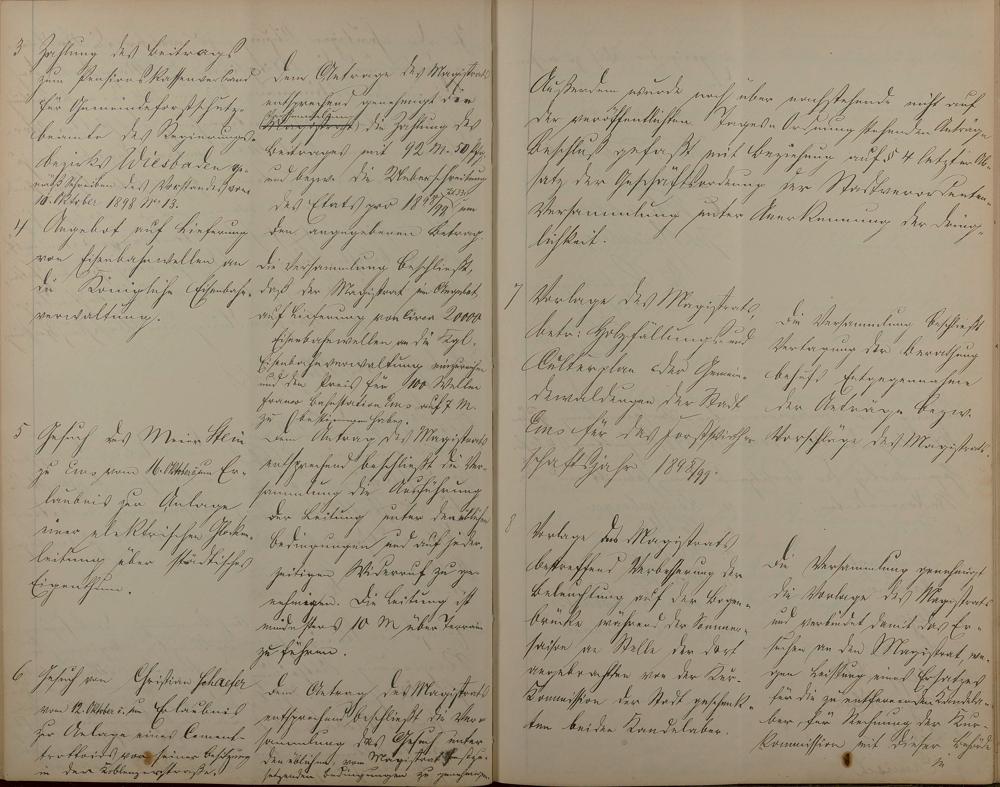 3 Zahlung des Beitrags
zum Pensions Kassenverband
für Gemeindeforstschutz-
beamte des Regierungs-
bezirks Wiesbaden ge-
mäß Schreiben des Vorstandes vom
10. Oktober 1898 No 13.
Dem Antrage des Magistrats
entsprechend genehmigt die
die Zahlung des
Beitrages mit 92 M. 50 Pfg.
und bezw. die Ueberschreitung
des Etats pro 1898/99 um
den angegebenen Betrag.
4 Angebot auf Lieferung
von Eisenbahnwellen an
die Königliche Eisenbahn-
verwaltung.
Die Versammlung beschließt,
daß der Magistrat ein Angebot
auf Lieferung von circa 20000
Eisenbahnwellen an die Kgl.
Eisenbahnverwaltung einzureichen
und den Preis für 100 Wellen
franco Bahnstation Ems auf 7 M.
zu bestimmen habe.
5 Gesuch des Meier Stein
zu Ems vom 16. Oktober um Er-
laubnis zur Anlage
einer elektrischen Glocken-
leitung über städtisches
Eigenthum.
Dem Antrag des Magistrats
entsprechend beschließt die Ver-
sammlung die Ausführung
der Leitung unter den üblichen
Bedingungen und auf jeder-
zeitigen Widerruf zu ge-
nehmigen. Die Leitung ist
mindestens 10 M über Terrain
zu führen.
6 Gesuch von Christian Schaefer
vom 12. Oktober um Erlaubnis
zur Anlage eines Cement-
trottoirs vor seiner Besitzung
in der Coblenzerstraße.
Dem Antrag des Magistrats
entsprechend beschließt die Ver-
sammlung das Gesuch unter
den üblichen, vom Magistrat festzu-
setzenden Bedingungen zu genehmigen.
Außerdem wurde noch über nachstehende nicht auf
der veröffentlichten Tages-Ordnung stehenden Anträge
Beschluß gefaßt mit Beziehung auf § 4 letzter Ab-
satz der Geschäftsordnung der Stadtverordneten-
Versammlung unter Anerkennung der Dring-
lichkeit.
7 Vorlage des Magistrats,
betr: Holzfällungs- und
Culturplan der Gemein-
dewaldungen der Stadt
Ems für das Forstwirth-
schaftsjahr 1898/99.
Die Versammlung beschließt
Vertagung der Berathung
behufs Entgegennahme
der Anträge bezw.
Vorschläge des Magistrats.
8 Vorlage des Magistrats
betreffend Verbesserung der
Beleuchtung auf der Bogen-
brücke während der Sommer-
saison an Stelle der dort
angebrachten von der Kur-
Commission der Stadt geschenk-
ten beiden Kandelaber.
Die Versammlung genehmigt
die Vorlage des Magistrats
und verbindet damit das Er-
suchen an den Magistrat, we-
gen Leistung eines Ersatzes
für die zu entfernenden Kandela-
ber, für Rechnung der Kur-
Kommission mit dieser Behörde
in